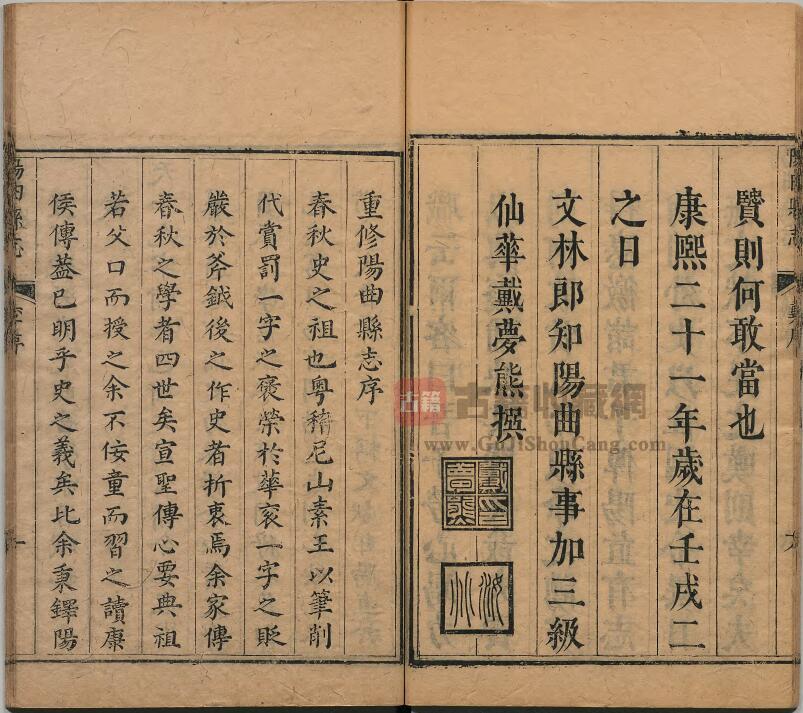 覽則何敢當也
康熙二十一年歲在壬戌二
之日
文林郎知陽曲縣事加三級
仙華戴夢熊撰
重修陽曲縣志序
春秋史之祖也粵稽尼山素王以筆削
代賞罰一字之褒榮於華袞一字之貶
嚴於斧鉞後之作史者折衷焉余家傳
春秋之學者四世矣宣聖傳心要典祖
若父口而授之余不佞童而習之讀康
侯傳葢已明乎史之義矣比余秉鐸陽
陽曲縣志
古籍
古籍收藏網
www.GuJiShouCang.com